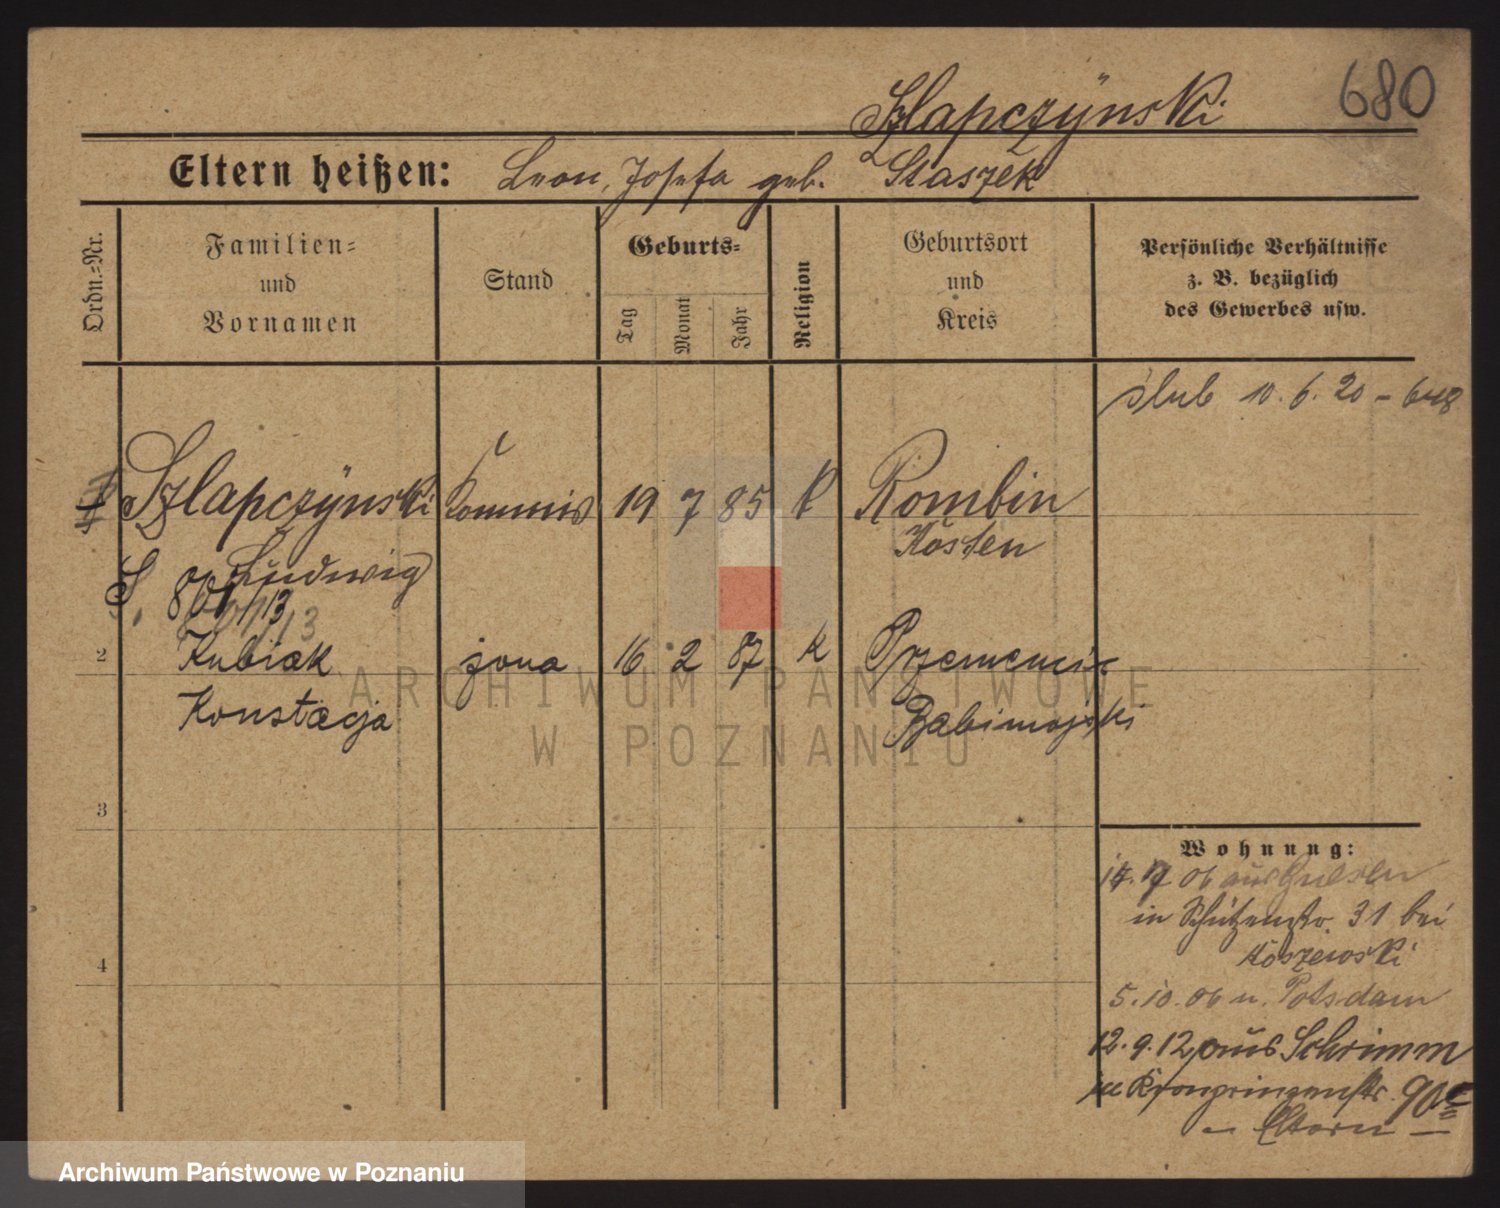 680
Szlapczÿnski
Eltern heißen: Leon, Josefa geb. Staszek
Ordn.=Nr.
Familien=
und
Vornamen
Stand
Geburts=
Tag
Monat
Jahr
Religion
Geburtsort
und
Kreis
Persönliche Verhältnisse
z. B. bezüglich
des Gewerbes usw.
ślub 10. 6. 20 - 648
Szlapczÿnski Kommis 19 7 85 k Rombin
Ludwig Kosten
S. 801/13
2 Kubiak żona 16 2 87 k Przemencie
Konstacja Babimojski
3
4
Wohnung:
06 aus Gnesen
in Schützenstr. 31 bei
Koszewski
5. 10. 06 n. Potsdam
12. 9. 12 aus Schrimm
in Kronprinzenstr. 90
- Eltern -
ARCHIWUM PAŃSTWOWE
W POZNANIU
Archiwum Państwowe w Poznaniu